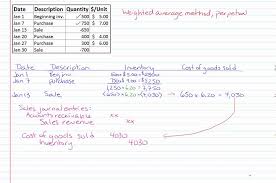 Date Description Quantity $/Unit
Jan 1 Beginning inv. 500 $ 5.00
Jan 7 Purchase 750 $ 7.00
Jan 13 Sale -650
Jan 20 Purchase 400 $ 6.00
Jan 30 Sale -700
Weighted average method, perpetual
Date Description Inventory Cost of goods sold
Jan 1 Beg inv
Jan 7 purchase
1,250 × 6.20 = 7,750
Jan 13 Sale (650) × 6.20 = (4,030) → 650 × 6.20 = 4,030
Sales journal entries:
Accounts receivable xx
Sales revenue xx
Cost of goods sold 4030
Inventory 4030